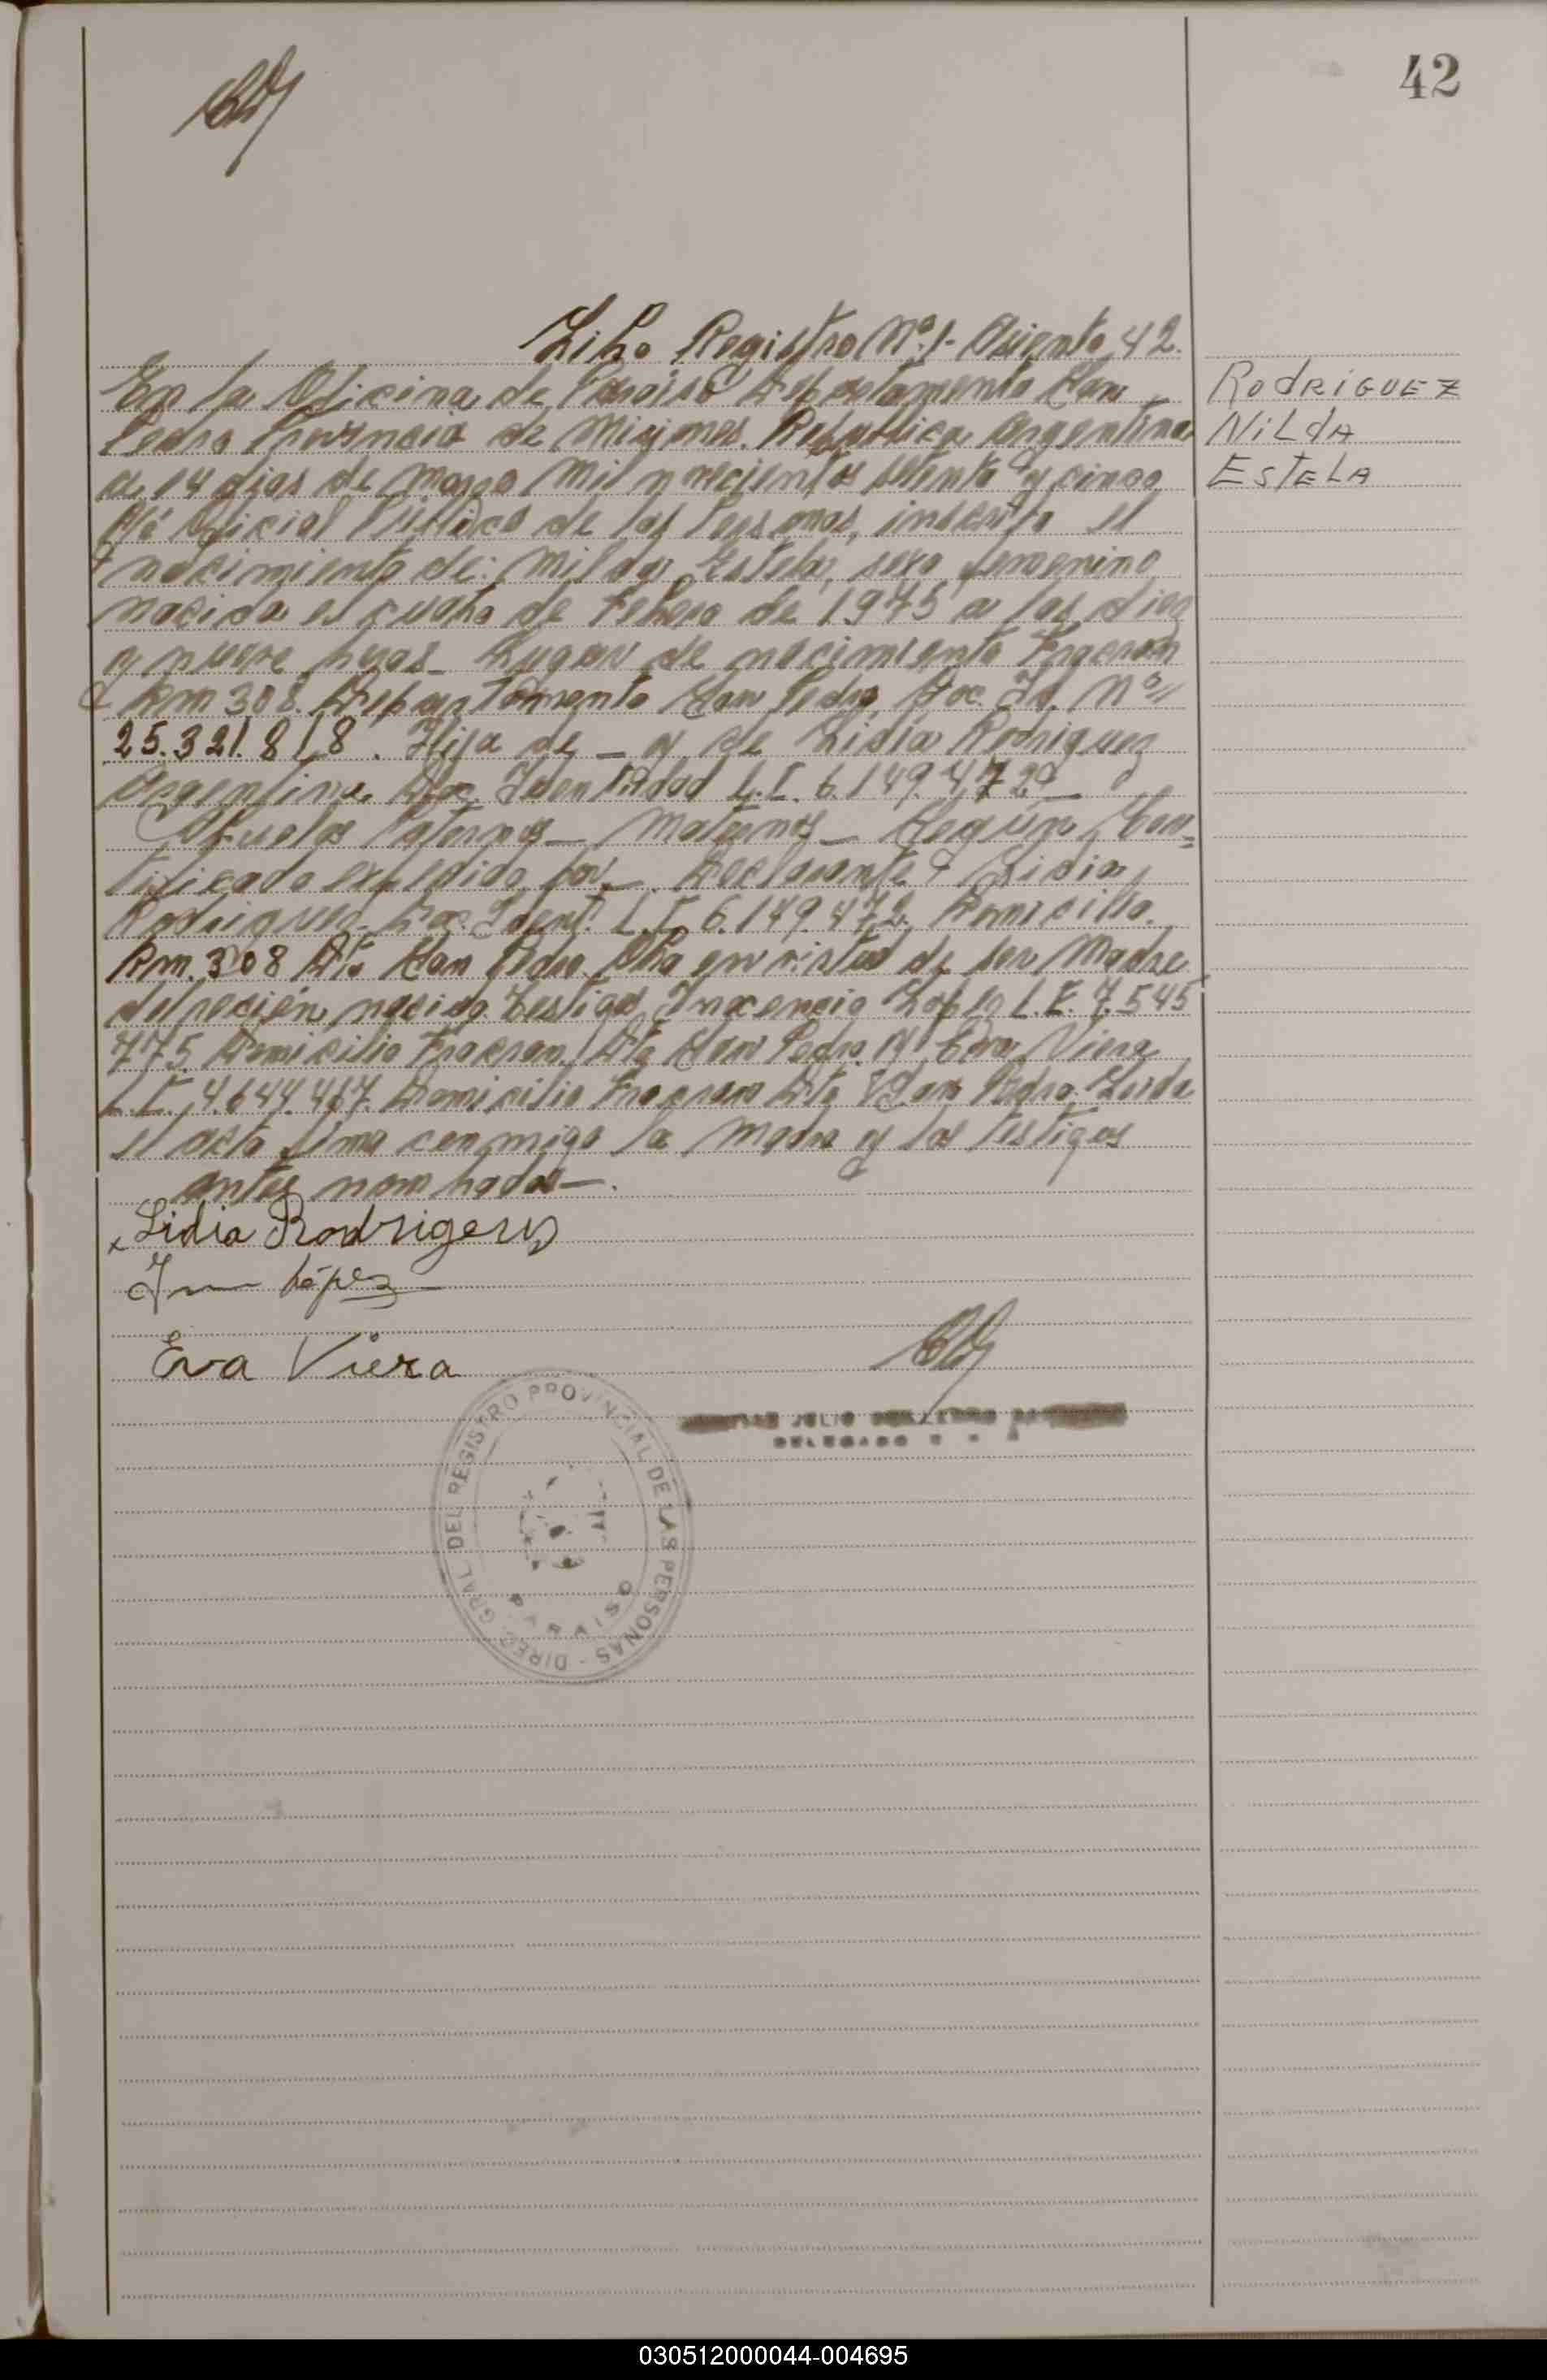 42
Libo Registro Nº 1- Asiento 42.
RODRIGUEZ
NILDA
ESTELA
En la Oficina de Paraiso Departamento San
Pedro Provincia de Misiones. Republica Argentina
a 14 dias de marzo mil novecientos setenta y cinco
Oficial Público de las Personas, inscribo el
nacimiento de: Estela, sexo femenino
nacida el cuatro de Febrero de 1975 a las diez
y nueve horas_ Lugar de nacimiento Fracran
Km 308. Departamento San Pedro, Doc. Id. Nº
25.321.818. Hija de _ y de Lidia Rodriguez
Argentina, Doc. Identidad L.C. 6.149.472_
Abuelos Paternos_ Maternos_ Según Cer=
tificado expedido por_. Declarante Lidia
Rodriguez. Doc. Ident. L.C. 6.149.472. Domicilio.
Km. 308 Dto San Pedro en virtud de ser Madre
del recien nacido. Testigos Inocencio Lopez L.E. 7.545
775. Domicilio Fracran, Dto San Pedro y Eva Viera
L.C. 4.644.467. Domicilio Fracran Dto San Pedro. Leida
el acta firma conmigo la Madre y los Testigos
antes nombrados_.
x Lidia Rodrigers
López
Eva Viera
JULIO
DELEGADO
DIREC. GRAL DEL REGISTRO PROVINCIAL DE LAS PERSONAS -
PARAISO
030512000044-004695